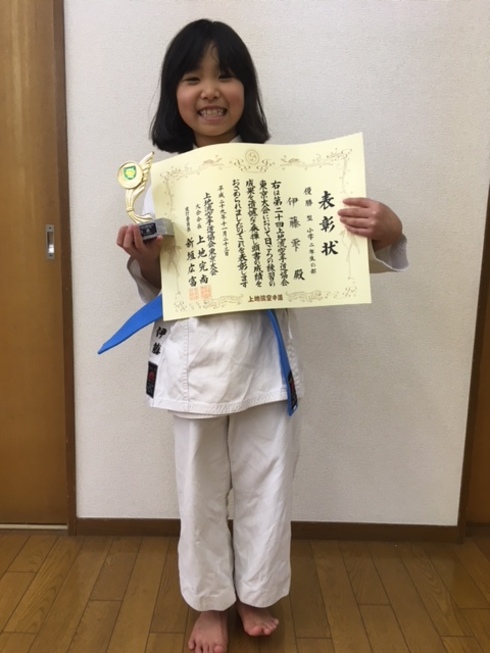 表彰状
優勝 型 小学二年生の部
伊藤 雫 殿
右は第二十四回上地流空手道協会
東京大会において日ごろの練習の
成果を遺憾なく発揮し頭書の成績を
おさめられましたのでこれを表彰します
平成二十九年十一月二十三日
上地流空手道協会東京大会
大会会長 上地完尚
実行委員長 新垣広富
上地流空手道
伊藤